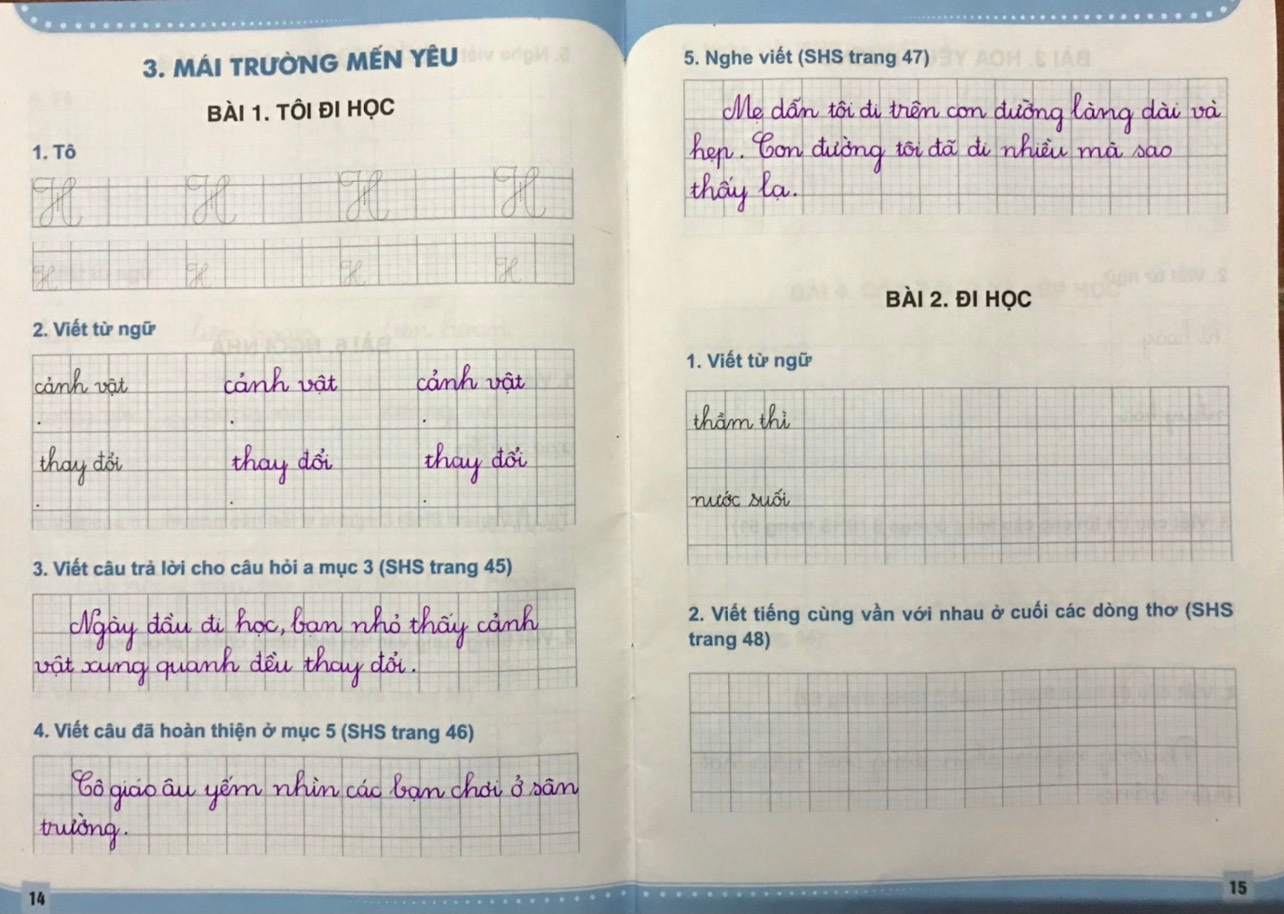 3. MÁI TRƯỜNG MẾN YÊU
BÀI 1. TÔI ĐI HỌC
1. Tô
H H H H
H H H H
2. Viết từ ngữ
cảnh vật cảnh vật cảnh vật
thay đổi thay đổi thay đổi
3. Viết câu trả lời cho câu hỏi a mục 3 (SHS trang 45)
Ngày đầu đi học, bạn nhỏ thấy cảnh
vật xung quanh đều thay đổi.
4. Viết câu đã hoàn thiện ở mục 5 (SHS trang 46)
Cô giáo âu yếm nhìn các bạn chơi ở sân
trường.
14
5. Nghe viết (SHS trang 47)
Mẹ dẫn tôi đi trên con đường làng dài và
hẹp. Con đường tôi đã đi nhiều mà sao
thấy lạ.
BÀI 2. ĐI HỌC
1. Viết từ ngữ
thầm thì
nước suối
2. Viết tiếng cùng vần với nhau ở cuối các dòng thơ (SHS
trang 48)
15